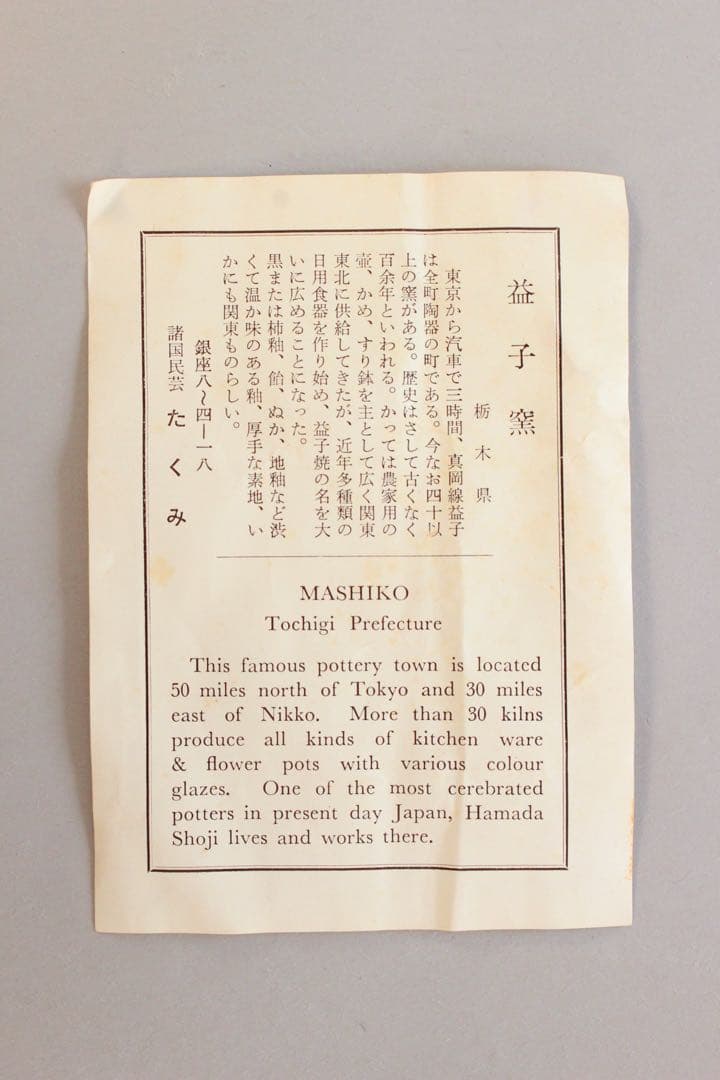 益子窯
栃木県
東京から汽車で三時間、真岡線益子
は全町陶器の町である。今なお四十以
上の窯がある。歴史はさして古くなく
百余年といわれる。かっては農家用の
壺、かめ、すり鉢を主として広く関東
東北に供給してきたが、近年多種類の
日用食器を作り始め、益子焼の名を大
いに広めることになった。
黒または柿釉、飴、ぬか、地釉など渋
くて温か味のある釉、厚手な素地、い
かにも関東ものらしい。
銀座八〜四ー一八
諸国民芸 たくみ
MASHIKO
Tochigi Prefecture
This famous pottery town is located
50 miles north of Tokyo and 30 miles
east of Nikko. More than 30 kilns
produce all kinds of kitchen ware
& flower pots with various colour
glazes. One of the most cerebrated
potters in present day Japan, Hamada
Shoji lives and works there.